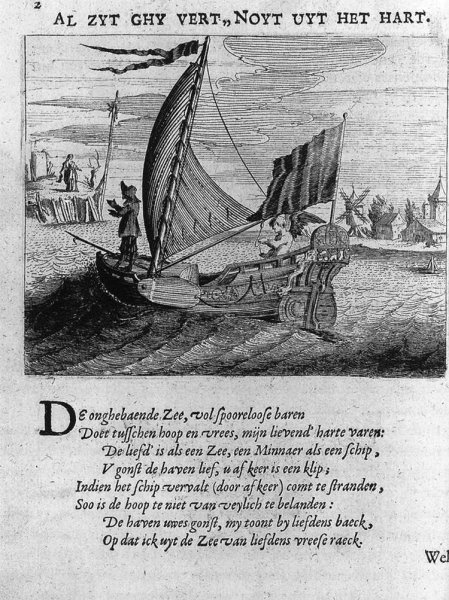 2
AL ZYT GHY VERT,, NOYT UYT HET HART.
DE onghebaende Zee, vol spooreloose baren
Doet tusschen hoop en vrees, mijn lievend' harte varen:
De liefd' is als een Zee, een Minnaer als een schip,
V gonst de haven lief, u afkeer is een klip;
Indien het schip vervalt (door afkeer) comt te stranden,
Soo is de hoop te niet van veylich te belanden:
De haven uwes gonst, my toont by liefdens baeck,
Op dat ick uyt de Zee van liefdens vreese raeck.
Wel